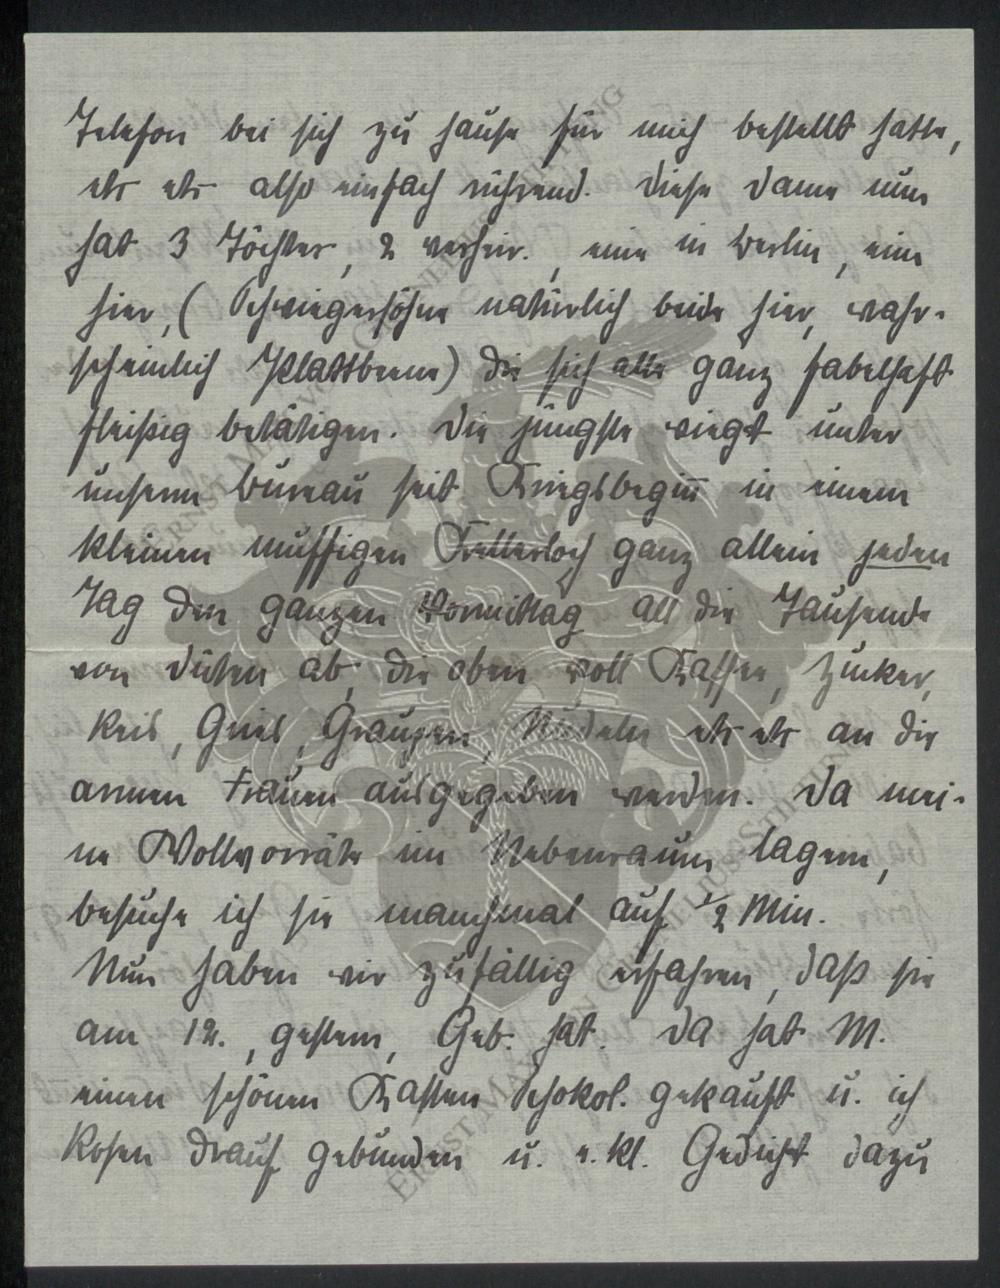 Telefon bei sich zu hause für mich bestellt hatte,
etc etc also einfach rührend. Diese Dame nun
hat 3 Töchter, 2 verheir., eine in Berlin, eine
hier, (Schwiegersöhne natürlich beide hier, wahr-
scheinlich Plattbeene) die sich alle ganz fabelhaft
fleißig betätigen. Die jüngste wiegt unter
unserm Bureau seit Kriegsbeginn in einem
kleinen muffigen Kellerloch ganz allein jeden
Tag den ganzen Vormittag all die Tausende
von Düten ab, die oben voll Kaffee, Zucker,
Reis, Gries, Graupen, Nudeln etc etc an die
armen Frauen ausgegeben werden. Da mei-
ne Wollvorräte im Nebenraum lagern,
besuche ich sie manchmal auf 1/2 Min.
Nun haben wir zufällig erfahren, daß sie
am 12., gestern, Geb. hat. Da hat M.
einen schönen Kasten Schokol. gekauft u. ich
Rosen drauf gebunden u. e. kl. Gedicht dazu
ERNST MAX VON CORNELIUS STIFTUNG
ERNST MAX VON CORNELIUS STIFTUNG